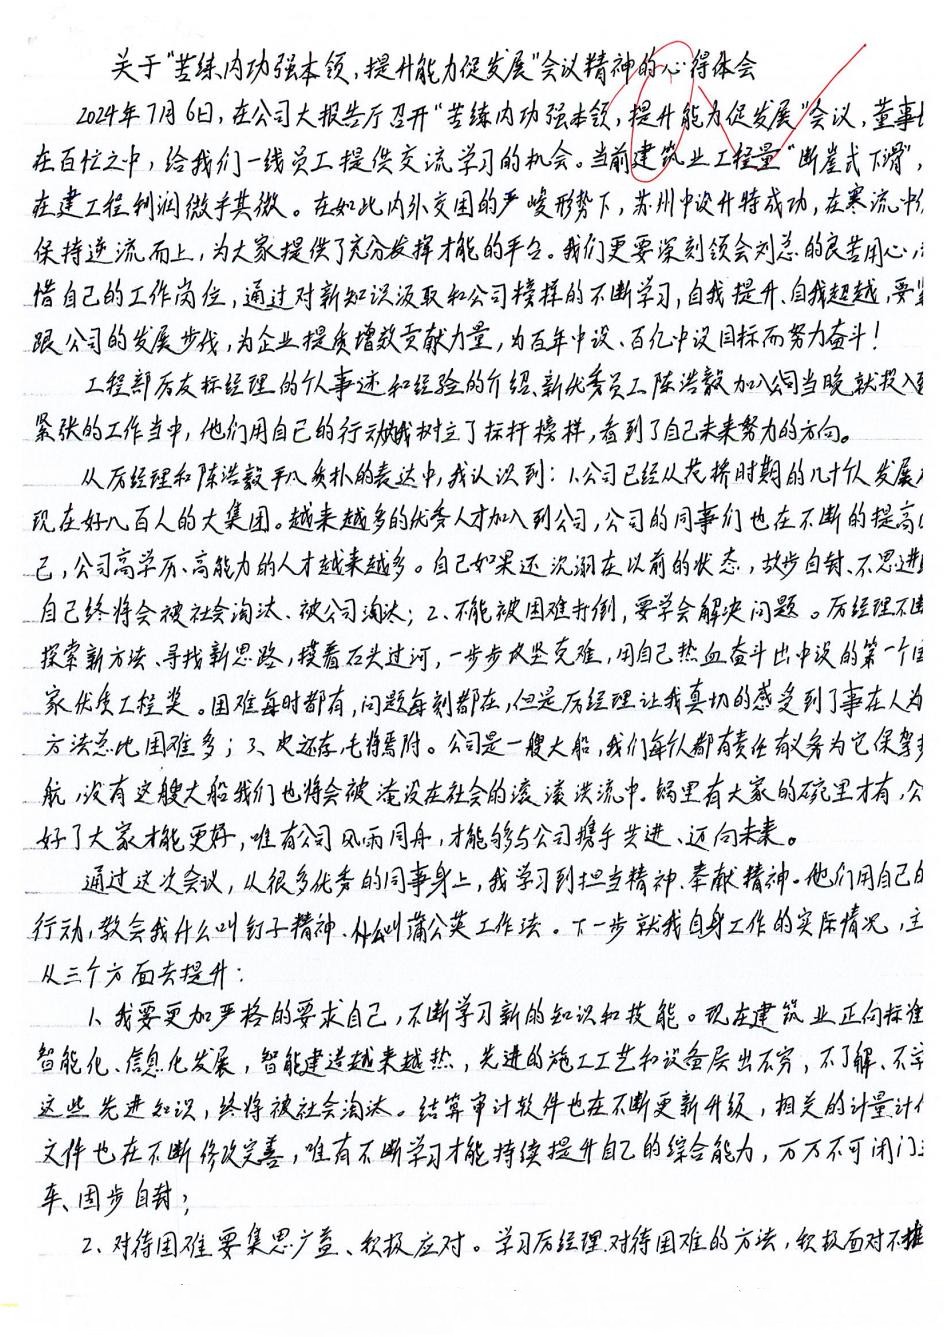 关于“苦练内功强本领，提升能力促发展”会议精神的心得体会
2024年7月6日，在公司大报告厅召开“苦练内功强本领，提升能力促发展”会议，董事长
在百忙之中，给我们一线员工提供交流学习的机会。当前建筑业工程量“断崖式下滑”，
在建工程利润微乎其微。在如此内外交困的严峻形势下，苏州中设升特成功，在寒流中
保持逆流而上，为大家提供了充分发挥才能的平台。我们更要深刻领会刘总的良苦用心，
惜自己的工作岗位，通过对新知识汲取和公司榜样的不断学习，自我提升、自我超越，要紧
跟公司的发展步伐，为企业提质增效贡献力量，为百年中设、百亿中设目标而努力奋斗！
工程部厉友标经理的个人事迹和经验的介绍、新优秀员工陈浩毅加入公司当晚就投入到
紧张的工作当中，他们用自己的行动给我树立了标杆榜样，看到了自己未来努力的方向。
从厉经理和陈浩毅平凡质朴的表达中，我认识到：1、公司已经从花桥时期的几十个人发展
现在好几百人的大集团。越来越多的优秀人才加入到公司，公司的同事们也在不断的提高自
己，公司高学历、高能力的人才越来越多。自己如果还沉溺在以前的状态，故步自封、不思进
自己终将会被社会淘汰、被公司淘汰；2、不能被困难打倒，要学会解决问题。厉经理不断
探索新方法、寻找新思路，摸着石头过河，一步步攻坚克难，用自己热血奋斗出中设的第一个国
家优质工程奖。困难每时都有，问题每刻都在，但是厉经理让我真切的感受到了事在人为
方法总比困难多；3、皮之不存，毛将焉附。公司是一艘大船，我们每个人都有责任有义务为它保驾
航，没有这艘大船我们也将会被淹没在社会的滚滚洪流中。锅里有大家的碗里才有，公
好了大家才能更好，唯有公司风雨同舟，才能够与公司携手共进、迈向未来。
通过这次会议，从很多优秀的同事身上，我学习到担当精神、奉献精神。他们用自己的
行动，教会我什么叫钉子精神、什么叫蒲公英工作法。下一步就我自身工作的实际情况，主
从三个方面去提升：
1、我要更加严格的要求自己，不断学习新的知识和技能。现在建筑业正向标准
智能化、信息化发展，智能建造越来越热，先进的施工工艺和设备层出不穷，不了解、不学
这些先进知识，终将被社会淘汰。结算审计软件也在不断更新升级，相关的计量计价
文件也在不断修改完善，唯有不断学习才能持续提升自己的综合能力，万万不可闭门造
车、固步自封；
2、对待困难要集思广益、积极应对。学习厉经理对待困难的方法，积极面对不推